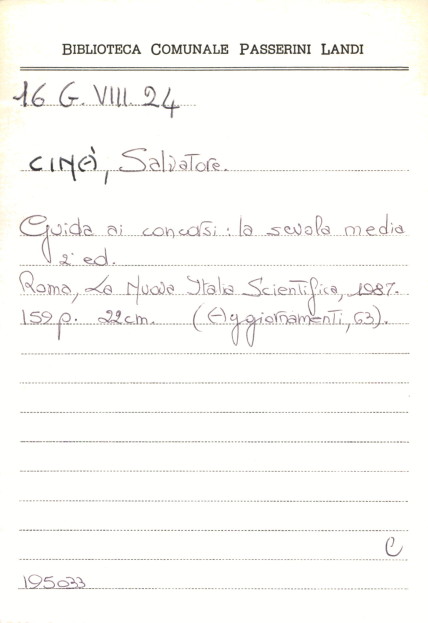 BIBLIOTECA COMUNALE PASSERINI LANDI
16 G. VIII. 24
CINÀ, Salvatore.
Guida ai concorsi: la scuola media
2ª ed.
Roma, La Nuova Italia Scientifica, 1987.
159 p. 22 cm. (Aggiornamenti, 63).
C
195033